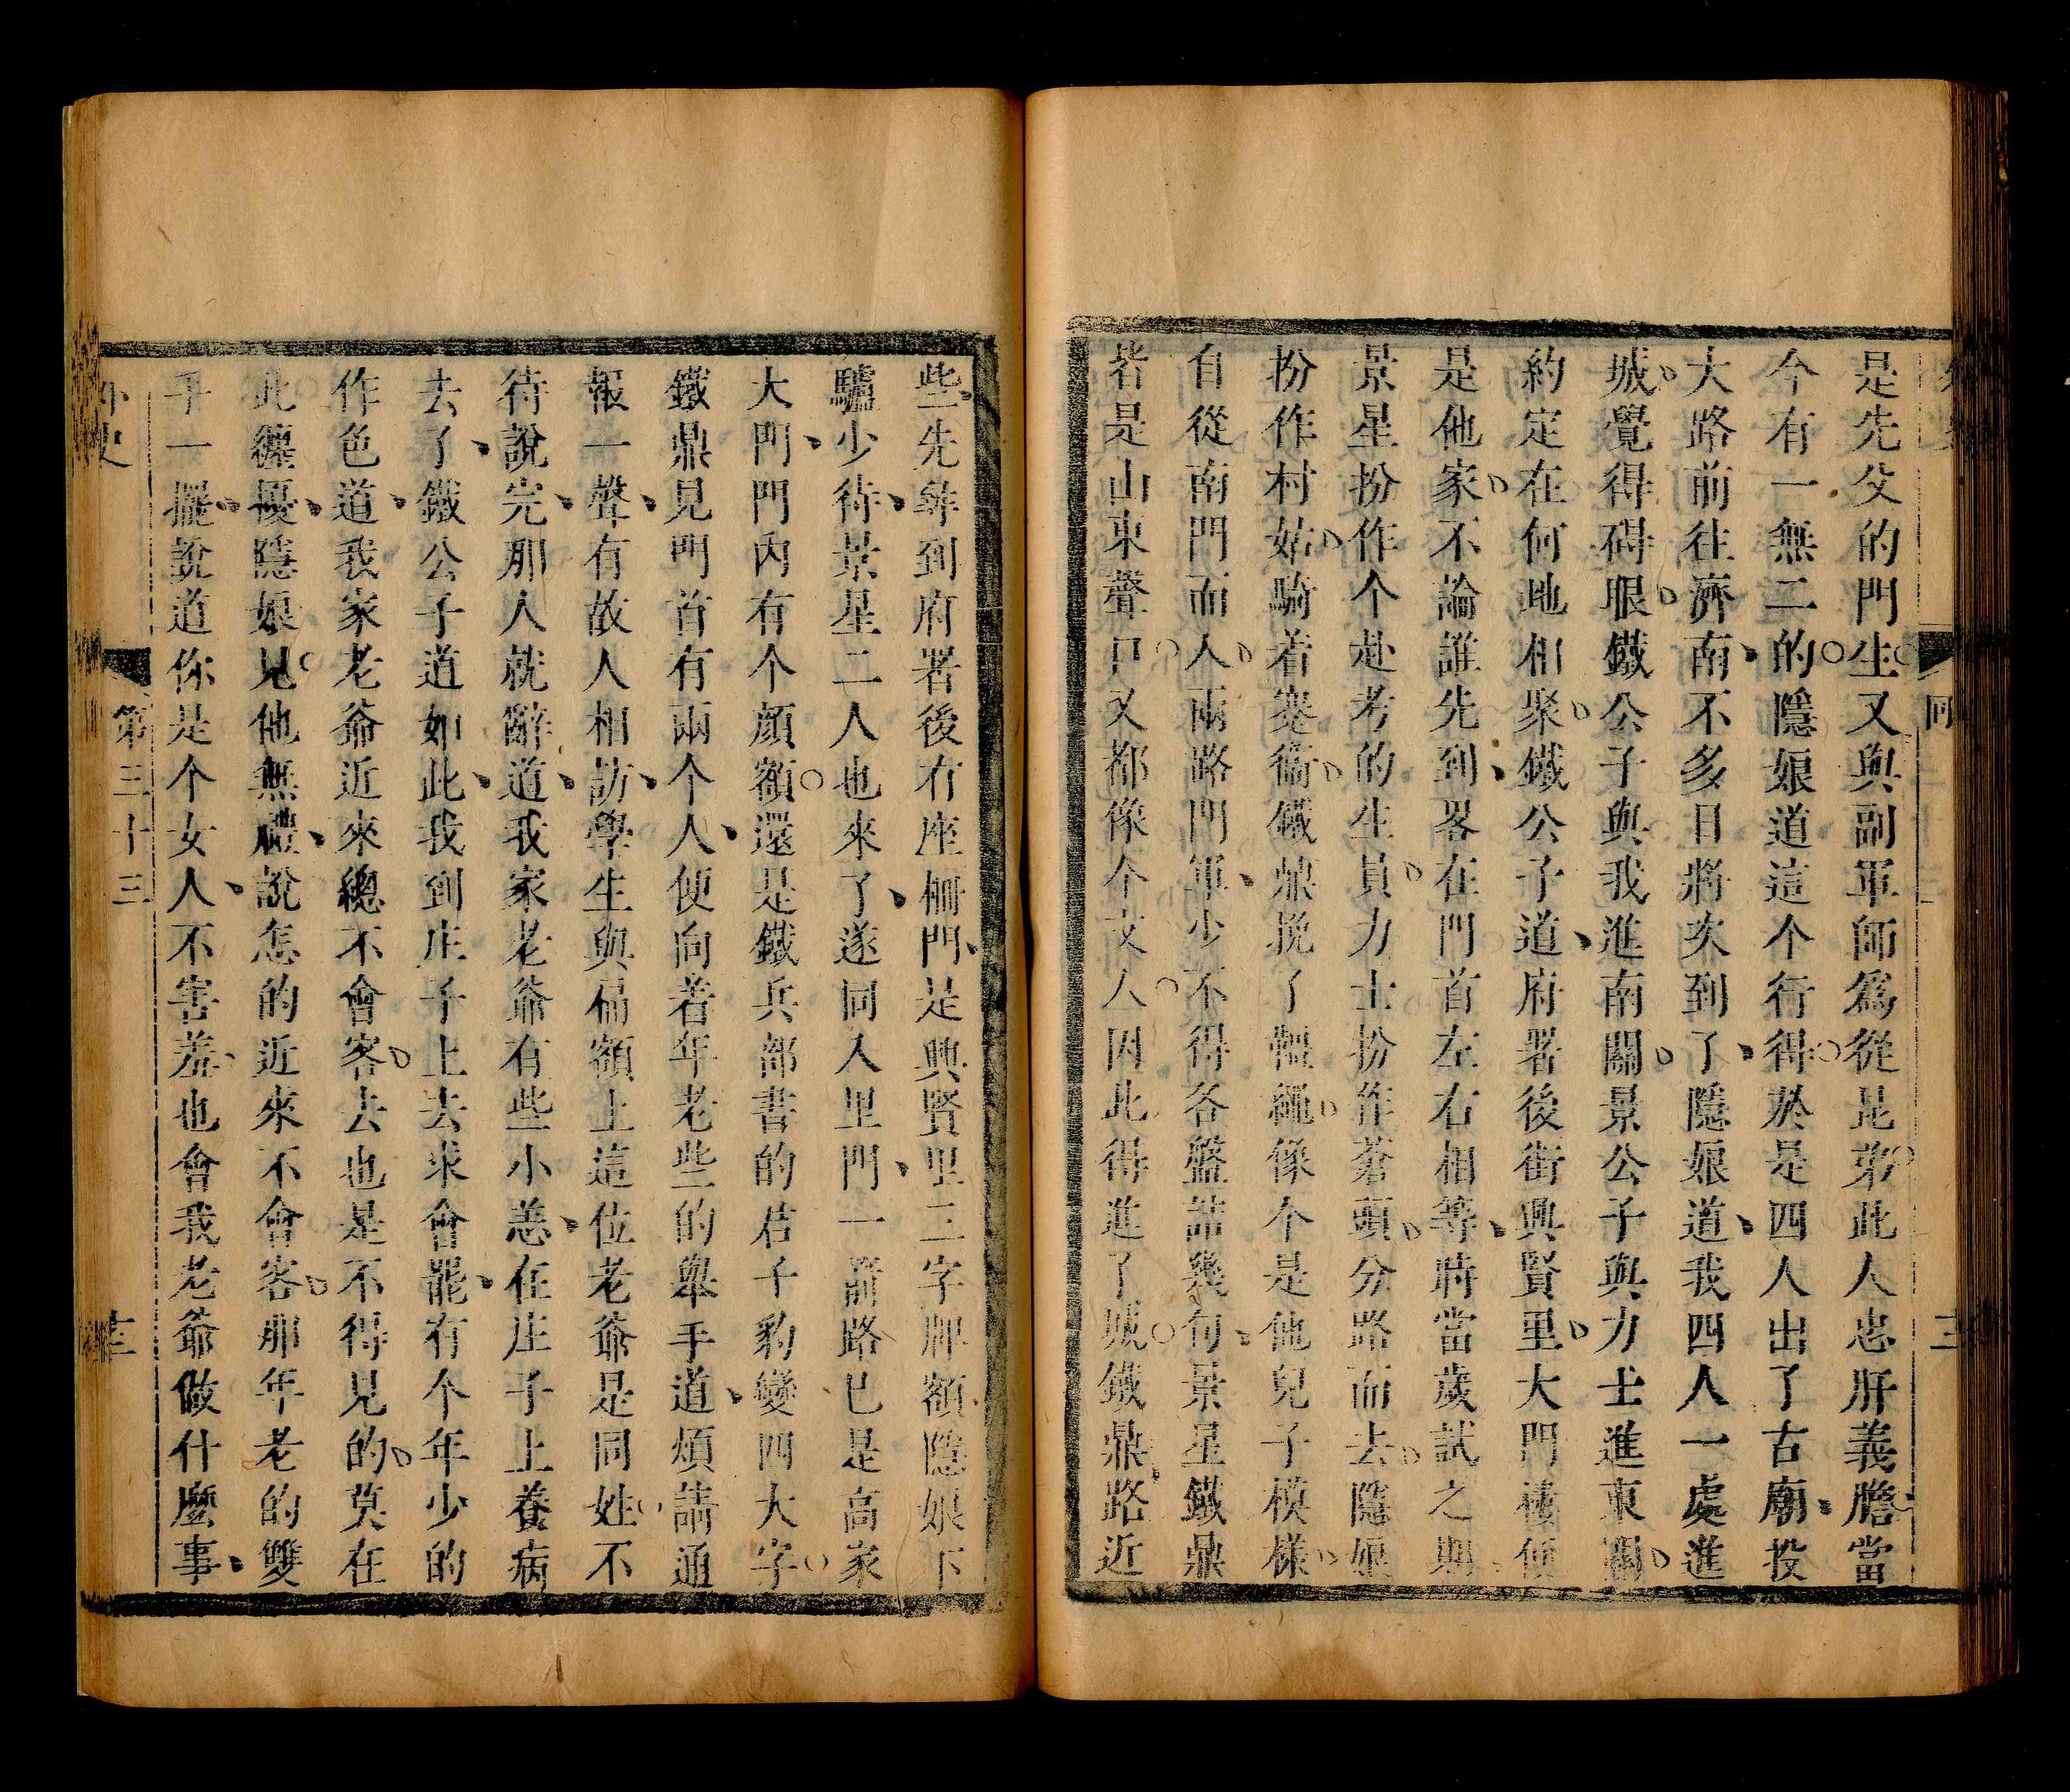 是先父的門生又與副軍師爲從昆弟此人忠肝義膽當
今有一無二的隱娘道這个行得於是四人出了古廟投
大路前往濟南不多日將次到了隱娘道我四人一處進
城覺得碍眼鐵公子與我進南關景公子與力士進東關
約定在何地相聚鐵公子道府署後街興賢里大門樓便
是他家不論誰先到畧在門首左右相等時當歲試之期
景星扮作个赴考的生員力士扮作蒼頭分路而去隱娘
扮作村姑騎着蹇衞鐵鼎挽了韁繩像个是他兒子模樣
自從南門而入兩路門軍少不得各盤詰幾句景星鐵鼎
若是山東聲口又都像个文人因此得進了城鐵鼎路近
些先奔到府署後有座柵門是興賢里三字牌額隱娘下
驢少待景星二人也來了遂同入里門一箭路已是高家
大門門內有个顏額還是鐵兵部書的君子豹變四大字
鐵鼎見門首有兩个人便向着年老些的舉手道煩請通
報一聲有故人相訪學生與扁額上這位老爺是同姓不
待說完那人就辭道我家老爺有些小恙在庄子上養病
去了鐵公子道如此我到庄子上去求會罷有个年少的
作色道我家老爺近來總不會客去也是不得見的莫在
此纏擾隱娘見他無禮說怎的近來不會客那年老的雙
手一擺說道你是个女人不害羞也會我老爺做什麼事
外史
第三十三